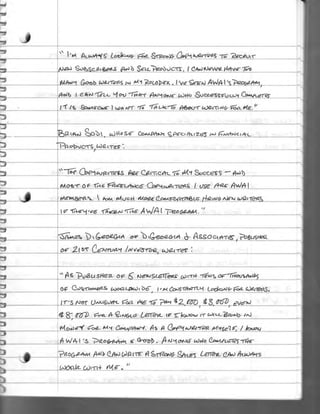 "I'm ALWAYS LOOKING FOR STRONG COPYWRITERS TO RECRUIT
NEW SUBSCRIBERS AND SELL PRODUCTS, I CAN NEVER HAVE TOO
MANY GOOD WRITERS IN MY ROLODEX. I'VE SEEN AWAI'S PROGRAM,
AND I CAN TELL YOU THAT ANYONE WHO SUCCESSFULLY COMPLETES
IT IS SOMEONE I WANT TO TALK TO ABOUT WRITING FOR ME."
BRIAN SODI, WHOSE COMPANY SPECIALIZES IN FINANCIAL
PRODUCTS, WRITES:
"THE COPYWRITERS ARE CRITICAL TO MY SUCCESS – AND
MOST OF THE FREELANCE COPYWRITERS I USE ARE AWAI
MEMBERS. I AM MUCH MORE COMFORTABLE HIRING NEW WRITERS
IF THEY'VE TAKEN THE AWAI PROGRAM."
JAMES DIGEORGIA OF DIGEORGIA & ASSOCIATES, PUBLISHER
OF 21ST CENTURY INVESTOR, WRITES:
"AS PUBLISHER OF 8 NEWSLETTERS WITH TENS OF THOUSANDS
OF CUSTOMERS WORLDWIDE, I'M CONSTANTLY LOOKING FOR WRITERS.
IT'S NOT UNUSUAL FOR ME TO PAY $2,500, $5,500, EVEN
$8,500 FOR A SINGLE LETTER IF I KNOW IT WILL BRING IN
MONEY FOR MY COMPANY. AS A COPYWRITER MYSELF, I KNOW
AWAI'S PROGRAM IS GOOD. ANYONE WHO COMPLETES THE
PROGRAM AND CAN WRITE A STRONG SALES LETTER CAN ALWAYS
WORK WITH ME."